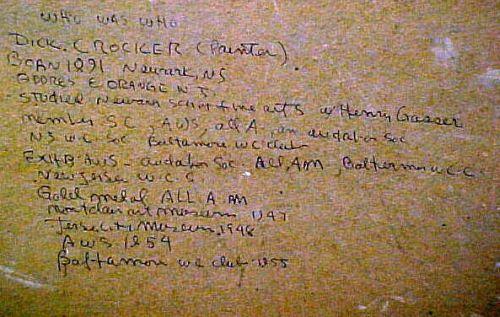 WHO WAS WHO
DICK. CROCKER (Painter).
BORN 1891 Newark, NJ
ADDRES E ORANGE N J.
Studied Newark School fine arts w Henry Gasser
member S C, AWS, all A, am audabon Soc
NJ WC Soc Baltamore WC club
EXHB AWS - audabon Soc. ALL, AM, Baltermr W C C
New Jerse W. C. S
Gold medal ALL. A. AM
montclair art museum 1947
Jerse City Museum, 1948
AWS 1954
Baltamore wc club 1955